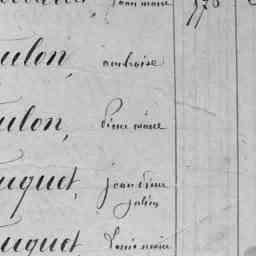 jean marie 176
ulon, ambroise
ulon, Pierre marie
uquet, jean Pierre
julien
uquet, Louis marie